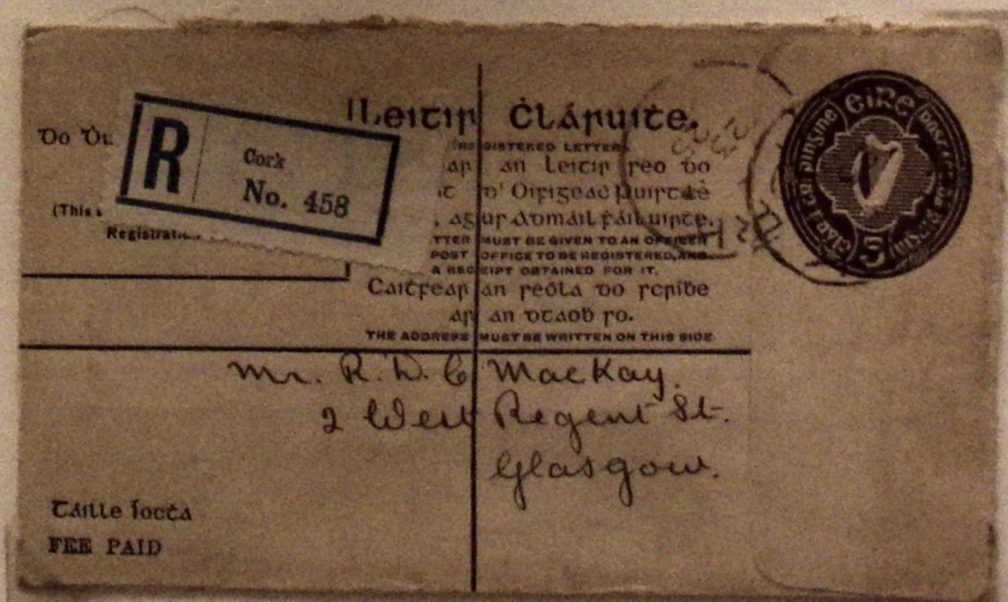 Leitir Ċláruiṫe.
REGISTERED LETTER.
Do
R
Cork
No. 458
(This
Registrati
an Leitir seo do
d' Oifigeaċ Puirt le
, agus admáil fáil uirṫe.
LETTER MUST BE GIVEN TO AN OFFICER
POST OFFICE TO BE REGISTERED, AND
A RECEIPT OBTAINED FOR IT.
Caiṫfear an seóla do scríbe
ar an dtaoḃ so.
THE ADDRESS MUST BE WRITTEN ON THIS SIDE
éire
5
Mr. R. D. C MacKay.
2 West Regent St.
Glasgow.
Táille íocṫa
FEE PAID